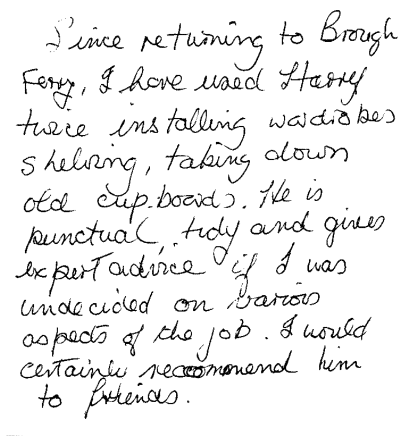 Since returning to Brough
Ferry, I have used Harry
twice installing wardrobes
shelving, taking down
old cup.boards. He is
punctual, tidy and gives
expert advice if I was
undecided on various
aspects of the job. I would
certainly recommend him
to friends.